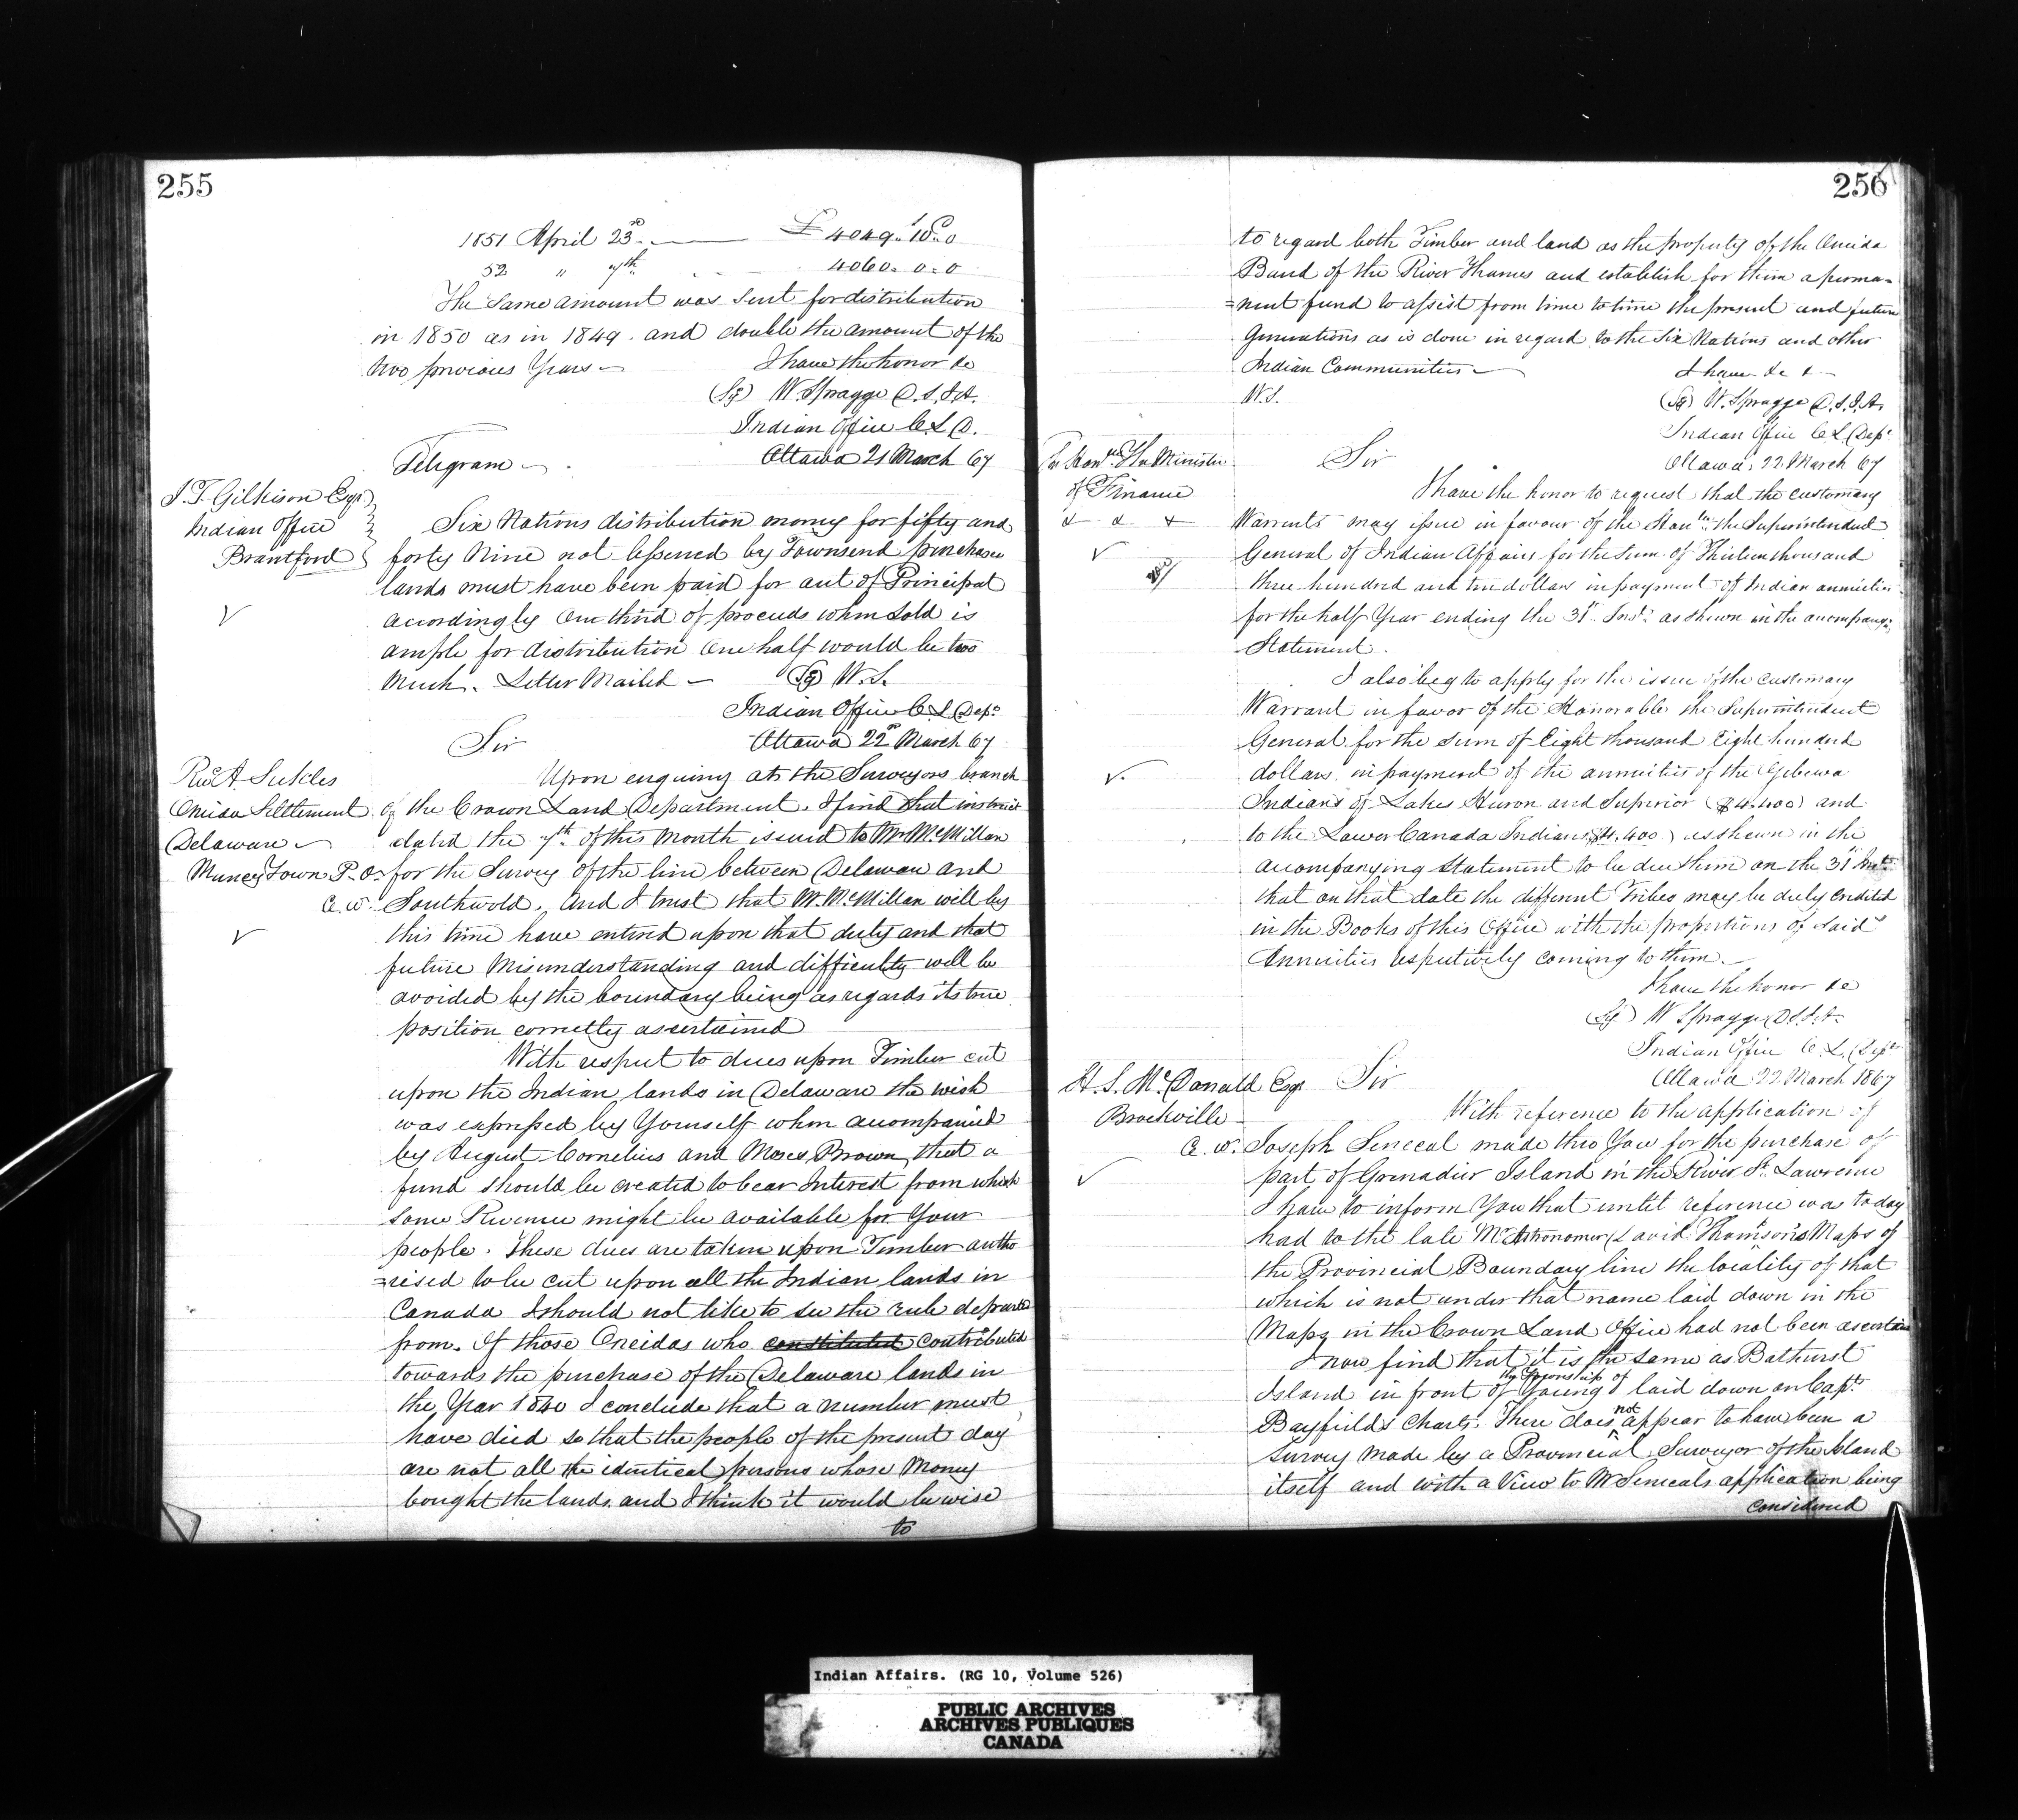 255
1851 April 23rd £ 4049. 10. 0
52 " 7th 4060. 0. 0
The Same amount was sent for distribution
in 1850 as in 1849. and double the amount of the
two previous Years – I have the honor &c
(Sg) W. Spragge D.S.I.A.
Indian Office C.L.D.
Telegram – Ottawa 21 March 67
J.T. Gilkison Esqr
Indian Office
Brantford
Six Nations distribution money for fifty and
forty Nine not lessened by Townsend purchase
lands must have been paid for out of Principal
accordingly One third of proceeds when Sold is
ample for distribution One half would be too
Much. Letter Mailed – (Sg) W.S.
Indian Office C.L. Dept
Sir Ottawa 22nd March 67
Revd A. Sickles
Oneida Settlement
Delaware –
Muncey Town P.O.
C.W.
Upon enquiry at the Surveyors branch
of the Crown Land Department. I find that instruct
dated the 7th of this Month issued to Mr McMillan
for the Survey of the line between Delaware and
Southwold. And I trust that Mr. McMillan will by
this time have entered upon that duty and that
future Misunderstanding and difficulty will be
avoided by the boundary being as regards its true
position correctly ascertained
With respect to dues upon Timber cut
upon the Indian lands in Delaware the wish
was expressed by Yourself when accompanied
by August Cornelius and Moses Brown, that a
fund should be created to bear Interest from which
some Revenue might be available for Your
people. These dues are taken upon Timber autho
=rised to be cut upon all the Indian lands in
Canada I should not like to see the rule departed
from. If those Oneidas who constituted contributed
towards the purchase of the Delaware lands in
the Year 1840 I conclude that a number must
have died so that the people of the present day
are not all the identical persons whose Money
bought the lands, and I think it would be wise
to
256
to regard both Timber and land as the property of the Oneida
Band of the River Thames and establish for them a perma=
=nent fund to assist from time to time the present and future
Generations as is done in regard to the Six Nations and other
Indian Communities – I have &c &
W.S. (Sg) W. Spragge D.S.I.A.
Indian Office C.L. Dept
Sir Ottawa, 22 March 67
The Honble The Minister
of Finance
& & &
I have the honor to request that the customary
Warrants may issue in favour of the Honble the Superintendent
General of Indian Affairs for the sum of Thirteen thousand
three hundred and ten dollars in payment of Indian annuities
for the half Year ending the 31st Inst. as shewn in the accompanyg
Statement.
I also beg to apply for the issue of the customary
Warrant in favor of the Honorable the Superintendent
General for the sum of Eight thousand Eight hundred
dollars in payment of the annuities of the Ojebewa
Indians of Lakes Huron and Superior ($4.400) and
to the Lower Canada Indians ($4.400) as shewn in the
accompanying Statement to be due them on the 31st Inst.
that on that date the different Tribes may be duly credited
in the Books of this Office with the proportions of said
Annuities respectively coming to them. –
I have the honor &c
(Sg) W Spragge D.S.I.A.
Indian Office C.L. Dept
Ottawa 22 March 1867
H.S. McDonald Esqr Sir
Brockville –
C.W.
With reference to the application of
Joseph Senecal made thro You for the purchase of
part of Grenadier Island in the River St. Lawrence
I have to inform You that until reference was to day
had to the late Mr Astronomer David Thomson's Maps of
the Provincial Boundary line the locality of that
which is not under that name laid down in the
Maps in the Crown Land Office had not been ascertaine
I now find that it is the same as Bathurst
Island in front of the Township of Young laid down on Capt.
Bayfield's Charts. There does not appear to have been a
Survey made by a Provincial Surveyor of the Island
itself and with a View to Mr Senecals application being
considered
Indian Affairs. (RG 10, Volume 526)
PUBLIC ARCHIVES
ARCHIVES PUBLIQUES
CANADA